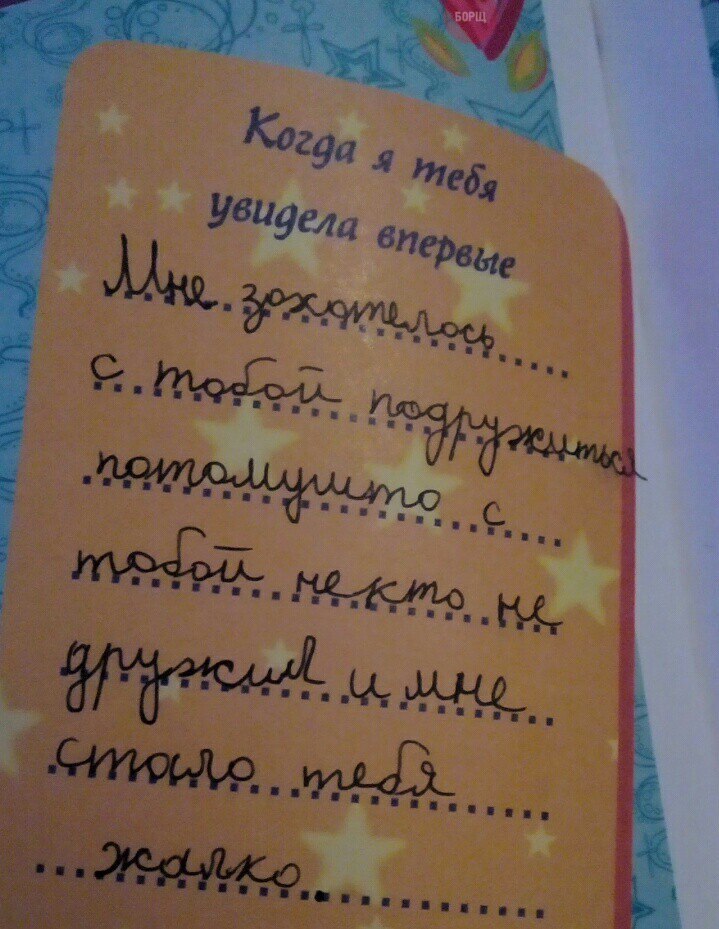 БОРЩ
Когда я тебя
увидела впервые
Мне захотелось
с тобой подружиться
потомушто с
тобой некто не
дружил и мне
стало тебя
жалко.